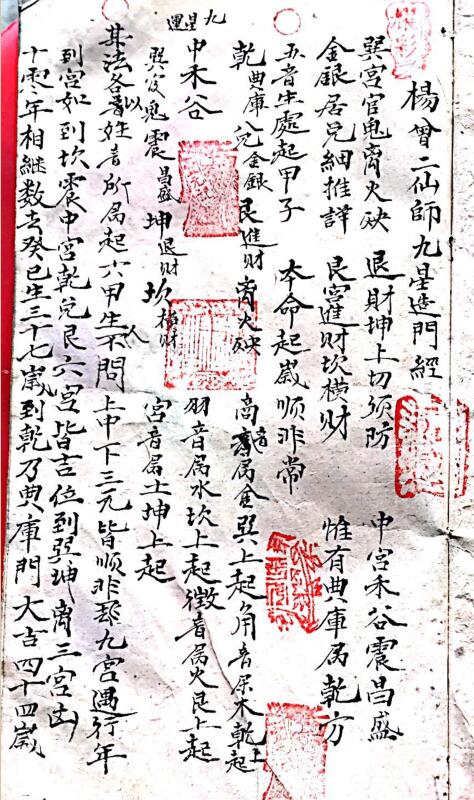 九星運
楊曾二仙師九星造門經
巽宮官鬼离火殃 退財坤上切須防 中宮禾谷震昌盛
金銀居兑細推詳 艮宮進財坎横財 惟有典庫属乾方
五音生處起甲子 本命起歲順非常
乾典庫 兑金銀 艮進財 离火殃 商音属金巽上起角音属木乾上起
中禾谷 羽音属水坎上起徵音属火艮上起
巽官鬼 震昌盛 坤退財 坎横財 宮音属土坤上起
其法各以音姓音所属起六甲生人不問上中下三元皆順非却九宮遇行年
到宮如到坎震中宮乾兑艮六宮皆吉位到巽坤离三宮凶
十零年相継数去癸巳生三十七歲到乾乃典庫門大吉四十四歲